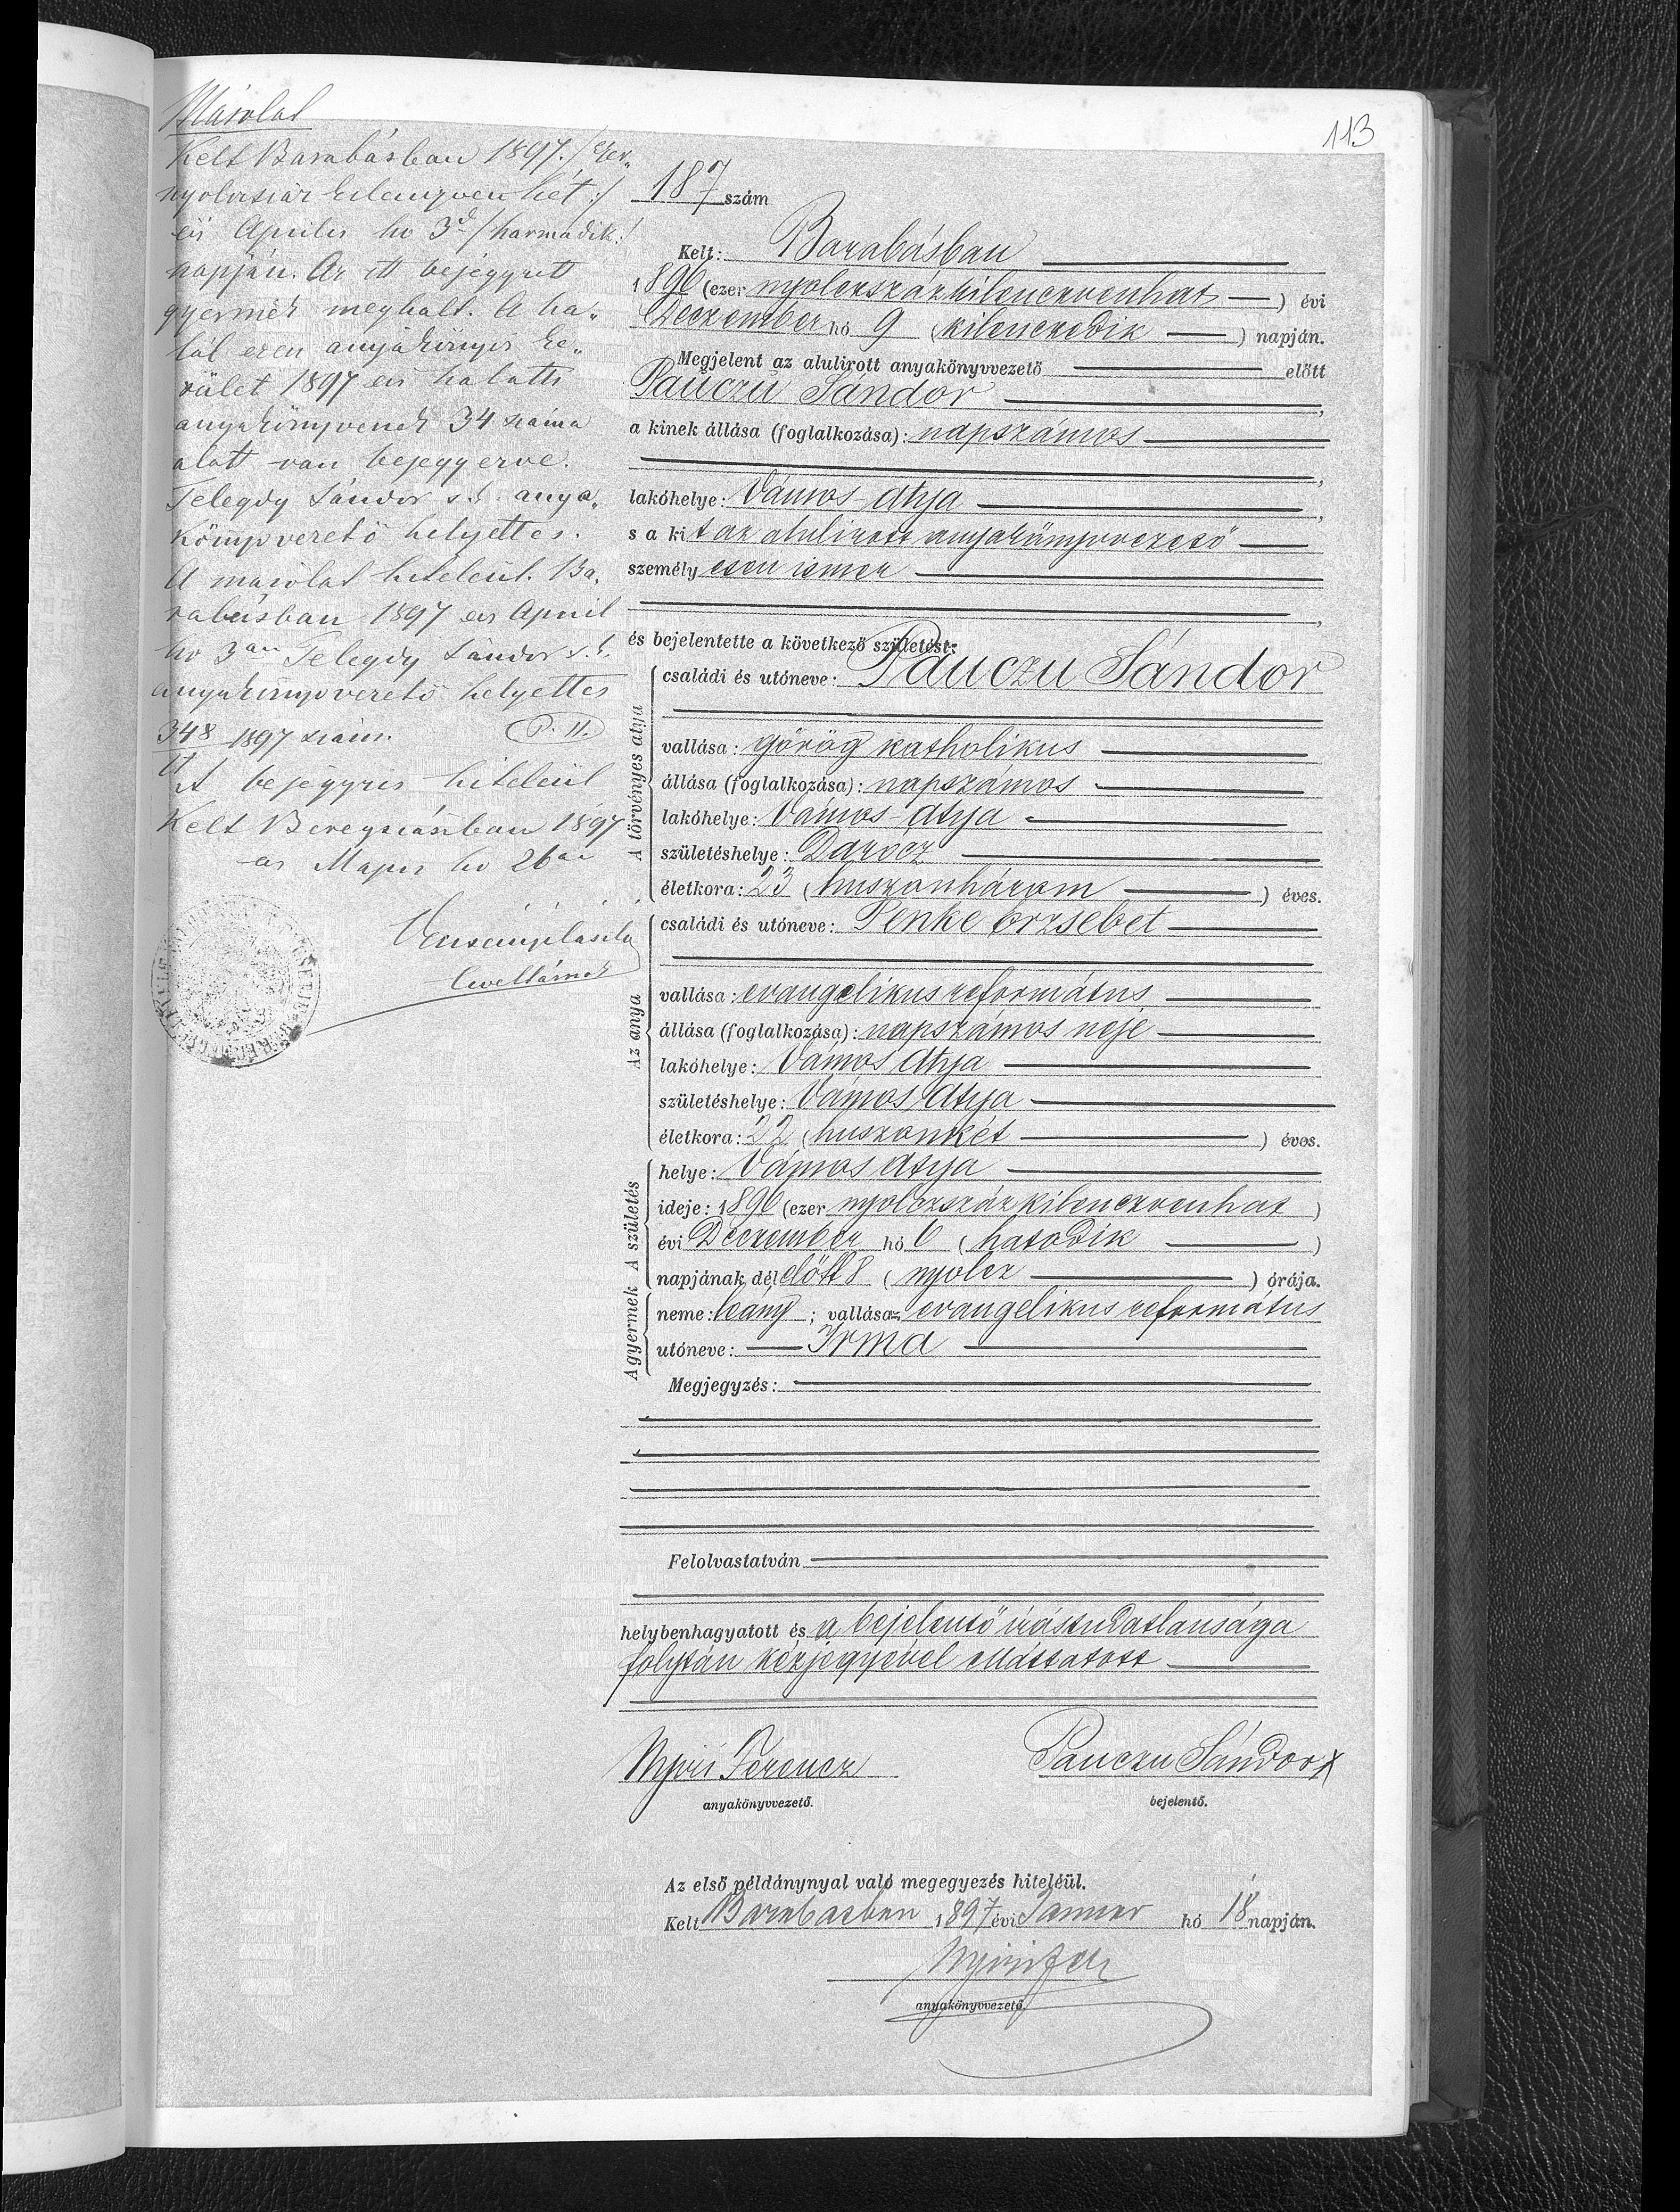 113
Másolat
Kelt Barabásban 1897./Ezer„
nyolczszáz kilenczven hét:/
évi Április hó 3d/harmadik:/
napján. Az itt bejegyzett
gyermek meghalt. A ha„
lál ezen anyakönyvi ke„
rület 1897 évi halotti
anyakönyvének 34 száma
alatt van bejegyezve.
Telegdy Sándor s.k. anya„
könyvvezető helyettes.
A másolat hiteléül. Ba„
rabásban 1897 évi April
hó 3án Telegdy Sándor s.k.
anyakönyvvezető helyettes
348 1897 szám. P. H.
A bejegyzés hiteléül
Kelt Beregszászban 1897
évi Május hó 26án
levéltárnok
187 szám
Kelt: Barabásban
1896 (ezer nyolczszázkilenczvenhat) évi
Deczember hó 9 (kilenczedik) napján.
Megjelent az alulirott anyakönyvvezető előtt
Pauczu Sándor,
a kinek állása (foglalkozása): napszámos
lakóhelye: Vámos-Atya,
s a kit az alulirott anyakönyvvezető
személyesen ismer
és bejelentette a következő születést:
A törvényes atya
családi és utóneve: Pauczu Sándor
vallása: görög katholikus
állása (foglalkozása): napszámos
lakóhelye: Vámos-Atya
születéshelye: Darócz
életkora: 23 (huszonhárom) éves.
Az anya
családi és utóneve: Penke Erzsébet
vallása: evangelikus református
állása (foglalkozása): napszámos neje
lakóhelye: Vámos Atya
születéshelye: Vámos Atya
életkora: 22 (huszonkét) éves.
A születés
helye: Vámos Atya
ideje: 1896 (ezer nyolczszázkilenczvenhat)
évi Deczember hó 6 (hatodik)
napjának délelőtt 8 (nyolcz) órája.
A gyermek
neme: leány; vallása: evangelikus református
utóneve: Irma
Megjegyzés:
Felolvastatván
helybenhagyatott és a bejelentő irástudatlansága
folytán kézjegyével elláttatott
Nyiri Ferencz Pauczu Sándor x
anyakönyvvezető. bejelentő.
Az első példánynyal való megegyezés hiteléül.
Kelt Barabásban 1897 évi Januar hó 18 napján.
Nyiri Fer
anyakönyvvezető.